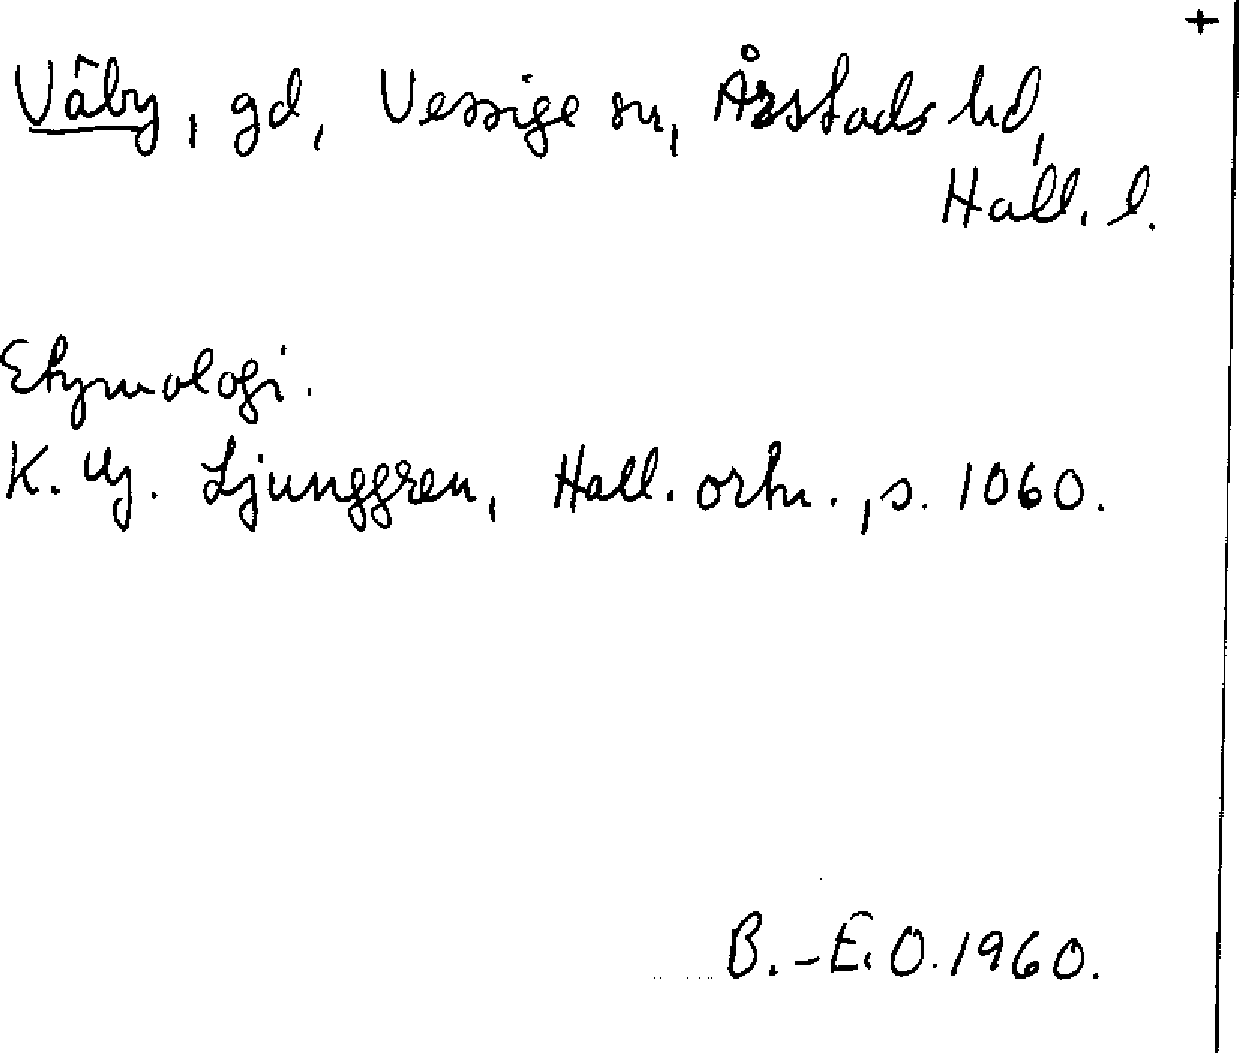 +
Våby, gd, Vessige sn, Årstads hd,
Hall. l.
Etymologi.
K. G. Ljunggren, Hall. ortn., s. 1060.
B.-E. O. 1960.